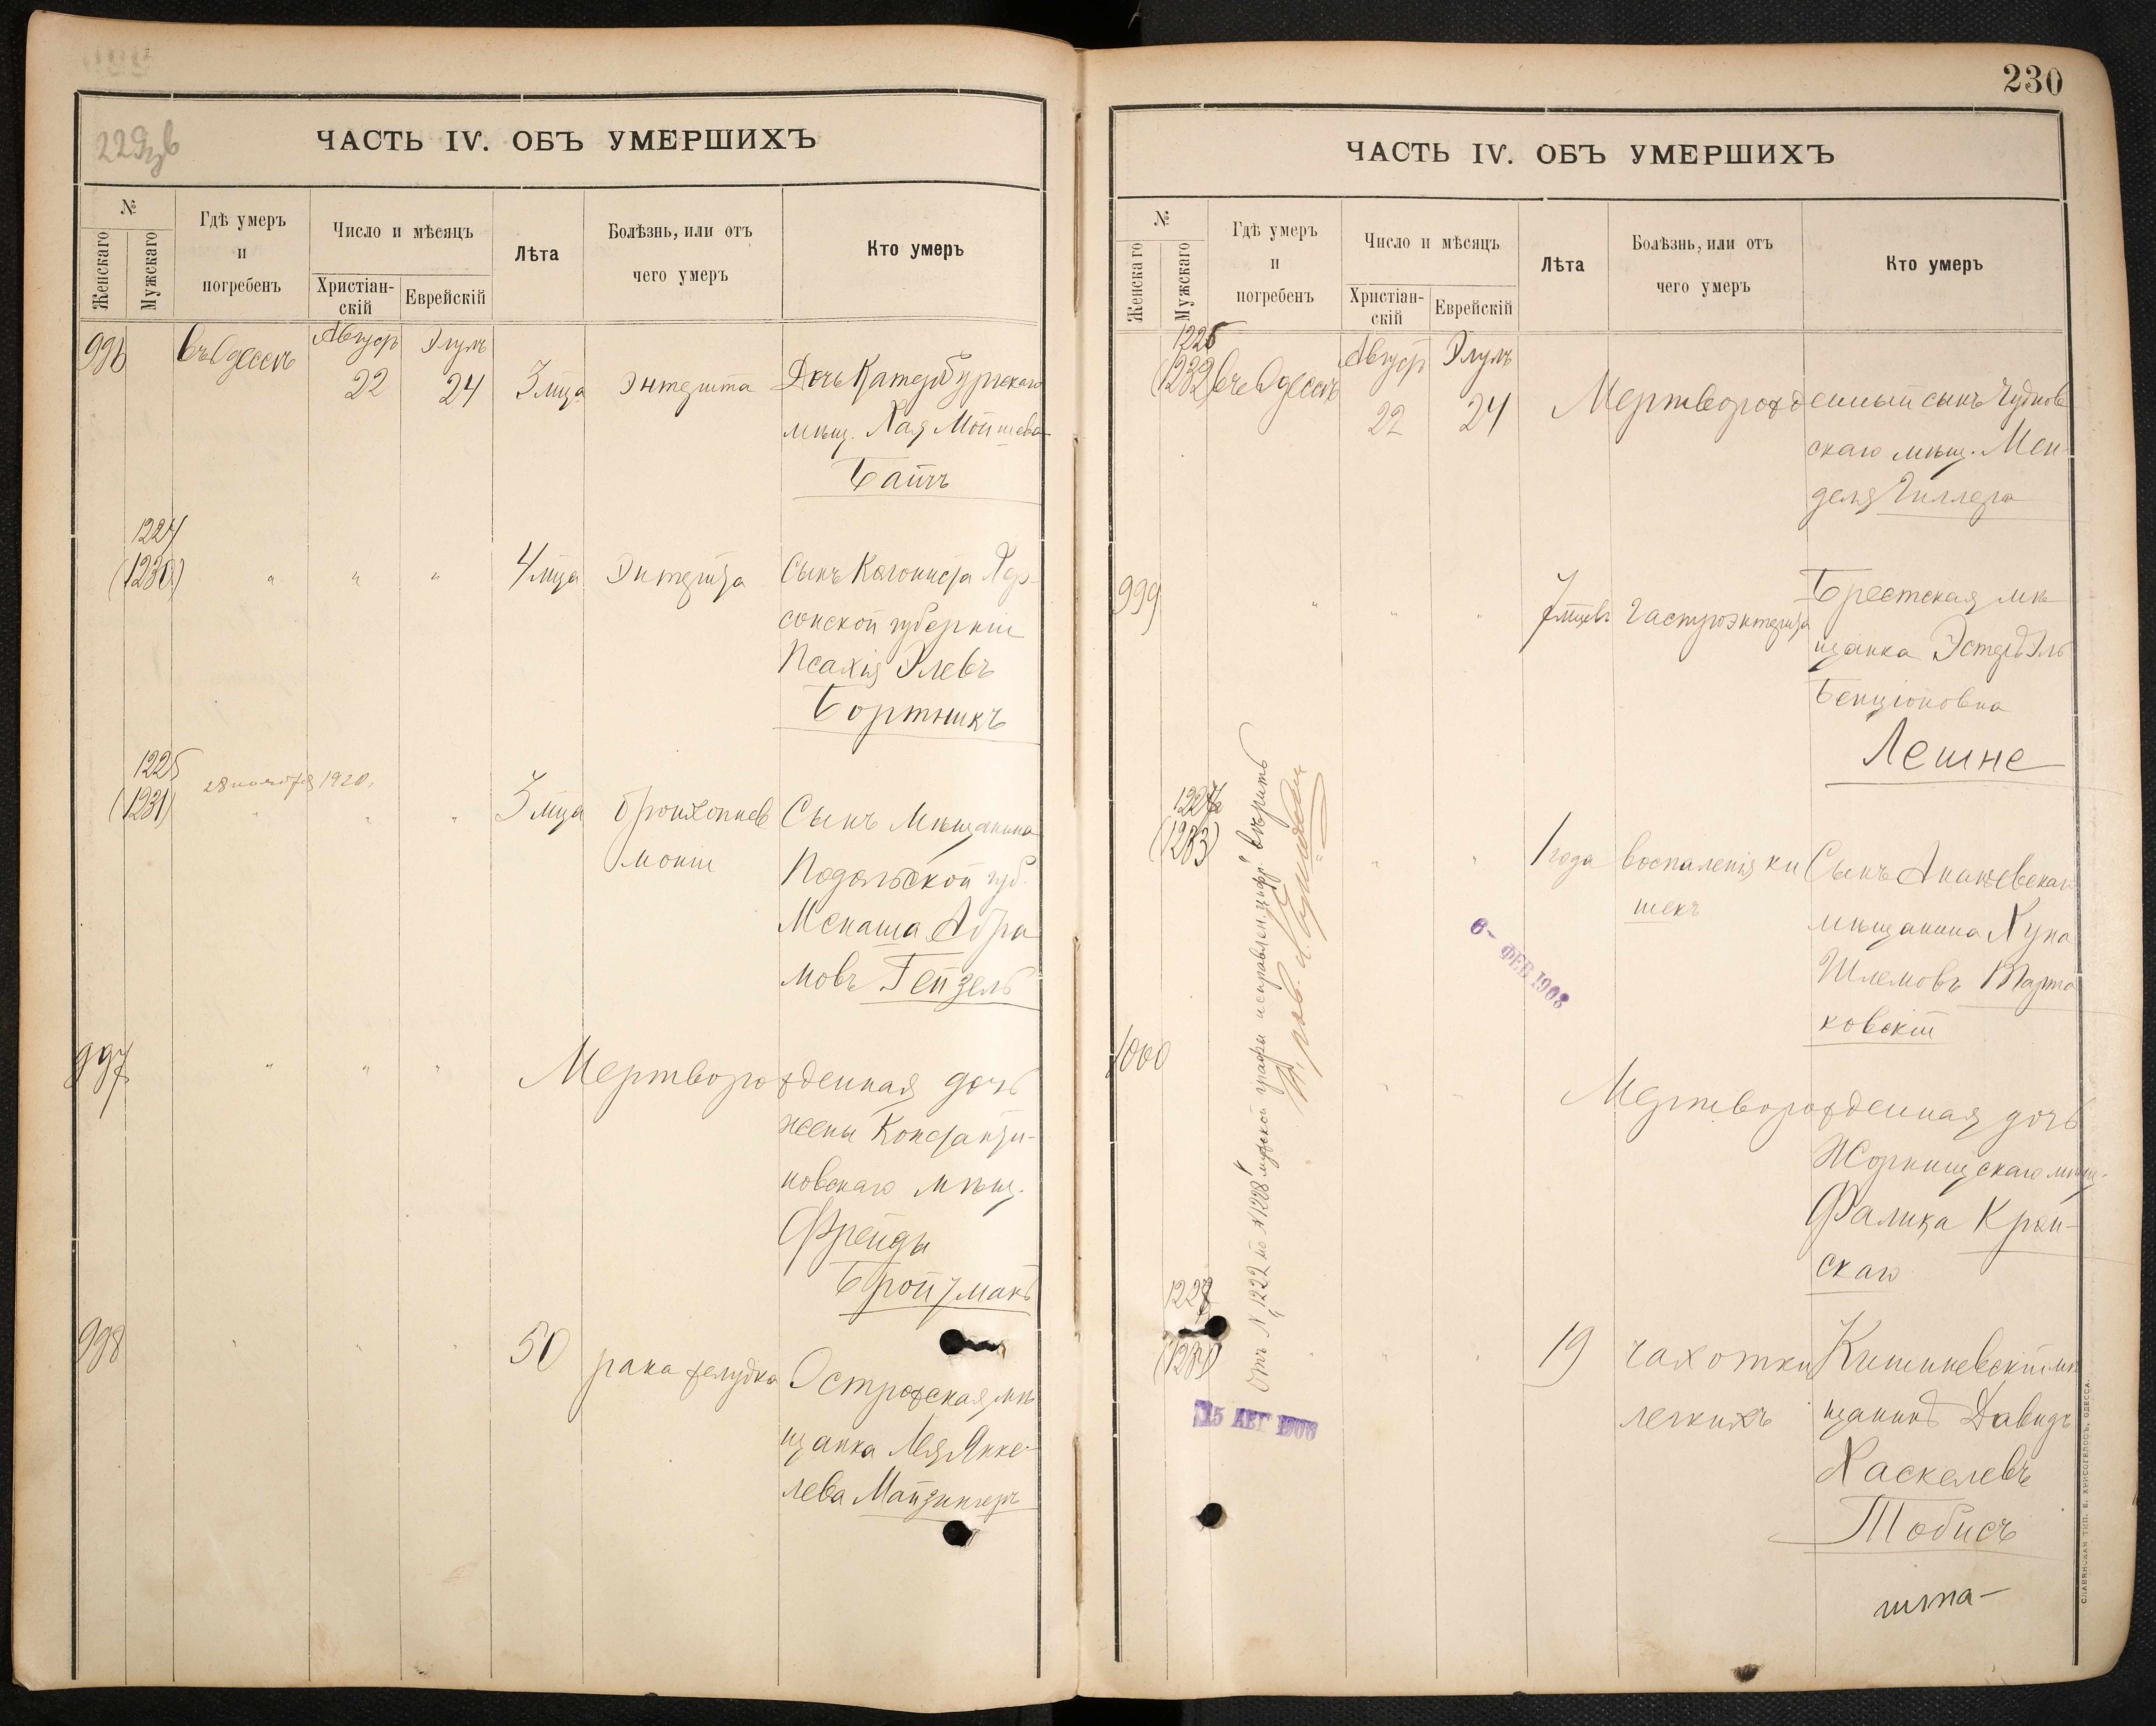 229 об
ЧАСТЬ IV. ОБЪ УМЕРШИХЪ
№
Женскаго
Мужскаго
Гдѣ умеръ
и
погребенъ
Число и мѣсяцъ
Христіан-
скій
Еврейскій
Лѣта
Болѣзнь, или отъ
чего умеръ
Кто умеръ
996
въ Одессѣ
Август
22
Элулъ
24
3 м-ца
Энтерита
Дочь Катербургскаго
мѣщ. Хая Мойшева
Бачъ
1224
(1230)
" " "
4 м-ца
Энтерита
Сынъ Колониста Хер-
сонской губерніи
Псахія Элевъ
Бортникъ
1225
(1231)
28 ноября 1920.
" " "
3 м-ца
бронхопнев
моніи
Сынъ Мѣщанина
Подольской губ.
Менаша Абра
мовъ Гейзель
997
" " "
Мертворожденная дочь
жены Константи-
новскаго мѣщ.
Фрейды
Бройтманъ
998
" " "
50
рака желудка
Острожская мѣ
щанка Лея Янке-
лева Майзингеръ
230
ЧАСТЬ IV. ОБЪ УМЕРШИХЪ
№
Женскаго
Мужскаго
Гдѣ умеръ
и
погребенъ
Число и мѣсяцъ
Христіан-
скій
Еврейскій
Лѣта
Болѣзнь, или отъ
чего умеръ
Кто умеръ
1226
(1232)
въ Одессѣ
Август
22
Элулъ
24
Мертворожденный сынъ Чуднов
скаго мѣщ. Мен-
деля Гиллера
999
" " "
7 м-цевъ
Гастроэнтерита
Брестская мѣ
щанка Эстеръ Эль
Бенціоновна
Лешне
1227
(1233)
" "
1 года
воспаленія ки
шекъ
Сынъ Ананьевскаго
мѣщанина Нуна
Шлемовъ Варта
ковскій
6- ФЕВ 1908
1000
" "
Мертворожденная дочь
Жорнищскаго мѣщ.
Фалика Край-
скаго
1228
(1234)
" " "
19
чахотки
легкихъ
Кишиневскій мѣ
щанинъ Давидъ
Хаскелевъ
Тобисъ
15 АВГ 1906
Отъ № 1222 по № 1228 мужской графы исправлен. цифр. вѣрить
СЛАВЯНСКАЯ ТИП. Е. ХРИСОГЕЛОСЪ, ОДЕССА.